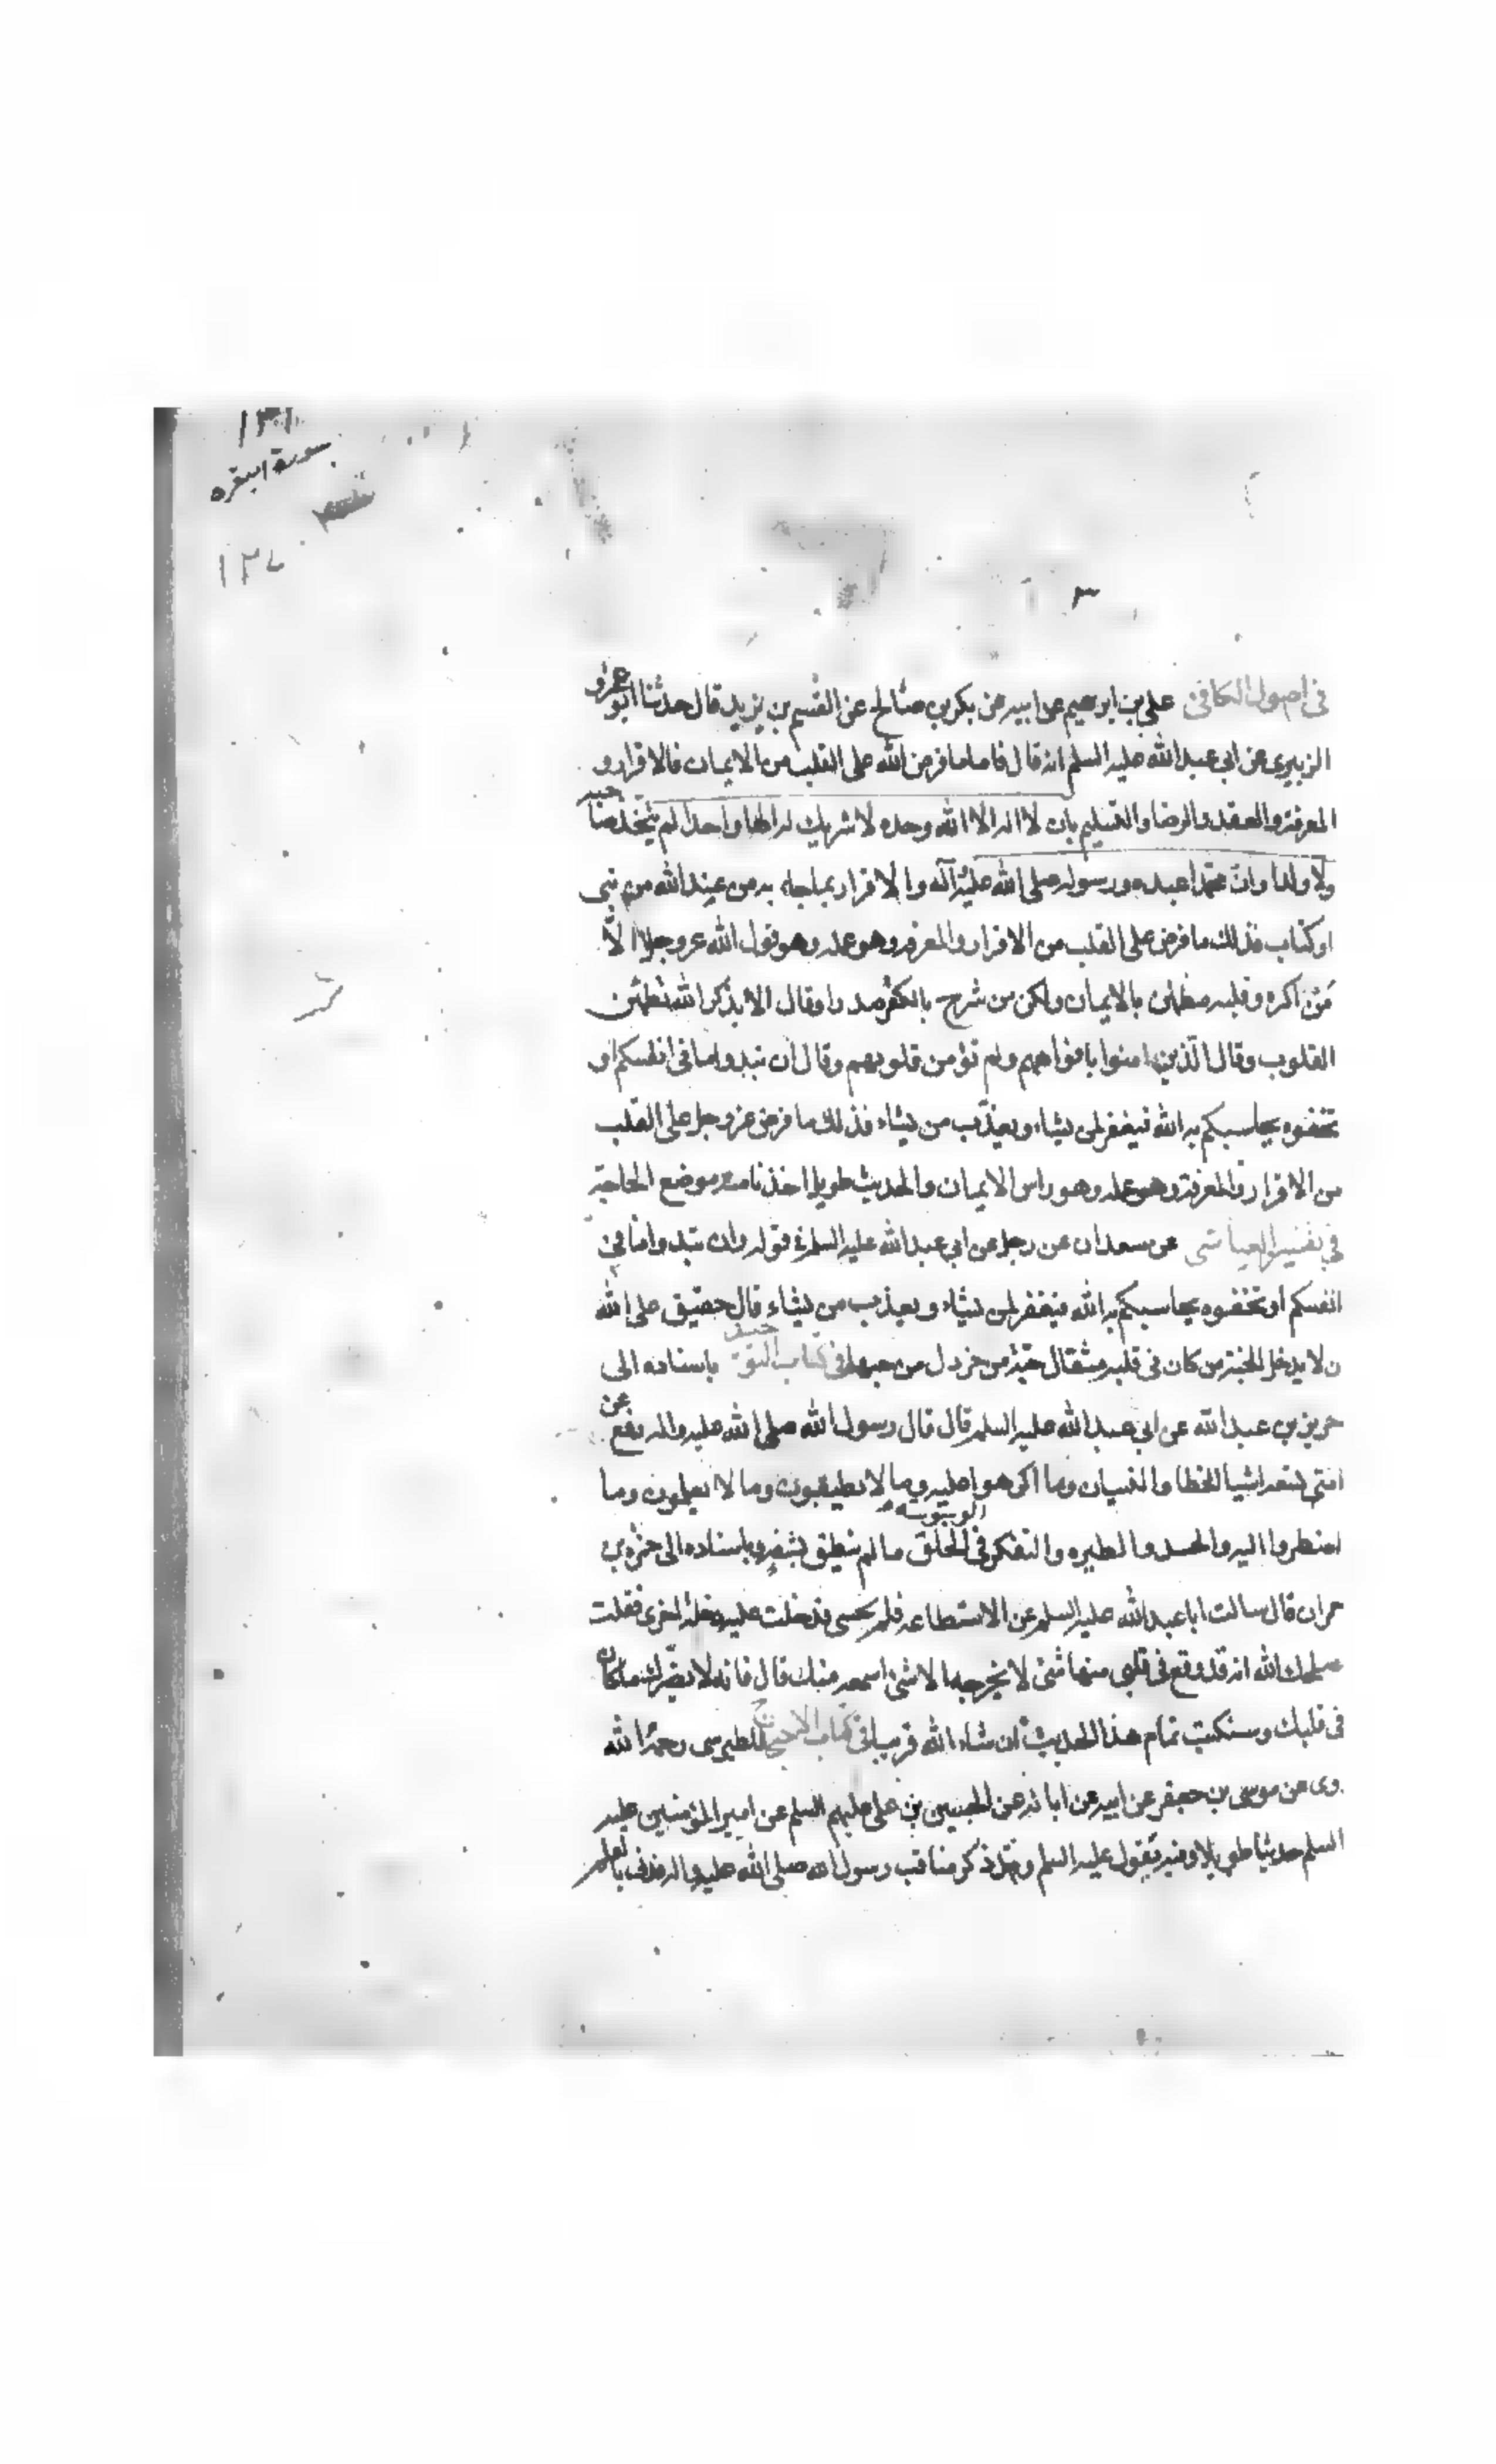 ١٣١
سورة البقره
١٣٧
٣
في اصول الكافي علي بن ابرهيم عن ابيه عن بكر بن صالح عن القسم بن يزيد قال حدثنا ابو عمرو
الزبيري عن ابي عبد الله عليه السلم انه قال فاما ما فرض الله على القلب من الايمان فالاقرار و
المعرفة والعقد والرضا والتسليم بان لا اله الا الله وحده لا شريك له الها واحدا لم يتخذ صاحبه
ولا ولدا وان محمدا عبده ورسوله صلى الله عليه وآله والاقرار بما جاء به من عند الله من نبي
او كتاب فذلك ما فرض على القلب من الاقرار والمعرفه وهو عمله وهو قول الله عز وجل الا
من اكره وقلبه مطمئن بالايمان ولكن من شرح بالكفر صدرا وقال الا بذكر الله تطمئن
القلوب وقال الذين امنوا بافواههم ولم تؤمن قلوبهم وقال ان تبدوا ما في انفسكم او
تخفوه يحاسبكم به الله فيغفر لمن يشاء ويعذب من يشاء فذلك ما فرض عز وجل على القلب
من الاقرار والمعرفة وهو عمله وهو راس الايمان والحديث طويل اخذنا منه موضع الحاجة
في تفسير العياشي عن سعدان عن رجل عن ابي عبد الله عليه السلم في قوله وان تبدوا ما في
انفسكم او تخفوه يحاسبكم به الله فيغفر لمن يشاء ويعذب من يشاء قال حقيق على الله
ن لا يدخل الجنة من كان في قلبه مثقال حبة من خردل من حبهما في كتاب التوحيد باسناده الى
حريز بن عبد الله عن ابي عبد الله عليه السلم قال قال رسول الله صلى الله عليه واله رفع عن
امتي تسعة اشيا الخطا والنسيان وما اكرهوا عليه وما لا يطيقون وما لا يعلمون وما
اضطروا اليه والحسد والطيره والتفكر في الوسوسة في الخلق ما لم ينطق بشفه وباسناده الى حمزة بن
حمران قال سالت ابا عبد الله عليه السلم عن الاستطاعه فلم يجبني فدخلت عليه دخلة اخرى فقلت
صلحك الله انه قد وقع في قلبي منها شئ لا يخرجه الا شئ اسمعه منك قال فانه لا يضرك ما كان
في قلبك وسنكتب تمام هذا الحديث ان شاء الله قريبا في كتاب الاحتجاج للطبرسي رحمه الله
روى عن موسى بن جعفر عن ابيه عن ابائه عن الحسين بن علي عليهم السلم عن امير المؤمنين عليه
السلم حديثا طويلا وفيه يقول عليه السلم وقد ذكر مناقب رسول الله صلى الله عليه واله فدنى بالعلم